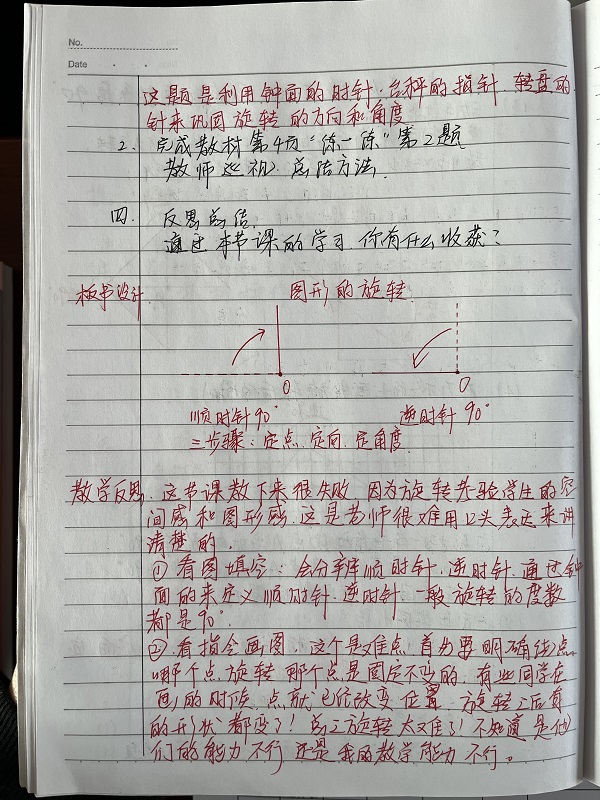 No.
Date
这题是利用钟面的时针、台秤的指针、转盘的
针来巩固旋转的方向和角度
2. 完成教材第4页“练一练”第2题
教师巡视、总结方法.
四. 反思总结.
通过本节课的学习你有什么收获?
板书设计 图形的旋转
O O
顺时针90° 逆时针90°
三步骤:定点、定向、定角度
教学反思:这节课教下来很失败,因为旋转考验学生的空
间感和图形感.这是老师很难用口头表达来讲
清楚的.
①看图填空:会分辨顺时针、逆时针.通过钟
面的来定义顺时针、逆时针.一般旋转的度数
都是90°.
②看指令画图.这个是难点.首先要明确绕点
哪个点旋转那个点是固定不变的,有些同学在
画的时候,点就已经改变位置.旋转之后有
的形状都变了!总之旋转太难了!不知道是他
们的能力不行还是我的教学能力不行。